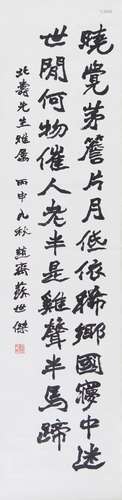 曉覺茅簷片月低依稀鄉國夢中迷
世間何物催人老半是雞聲半馬蹄
北壽先生雅屬 丙申九秋 趙齋 蘇世傑